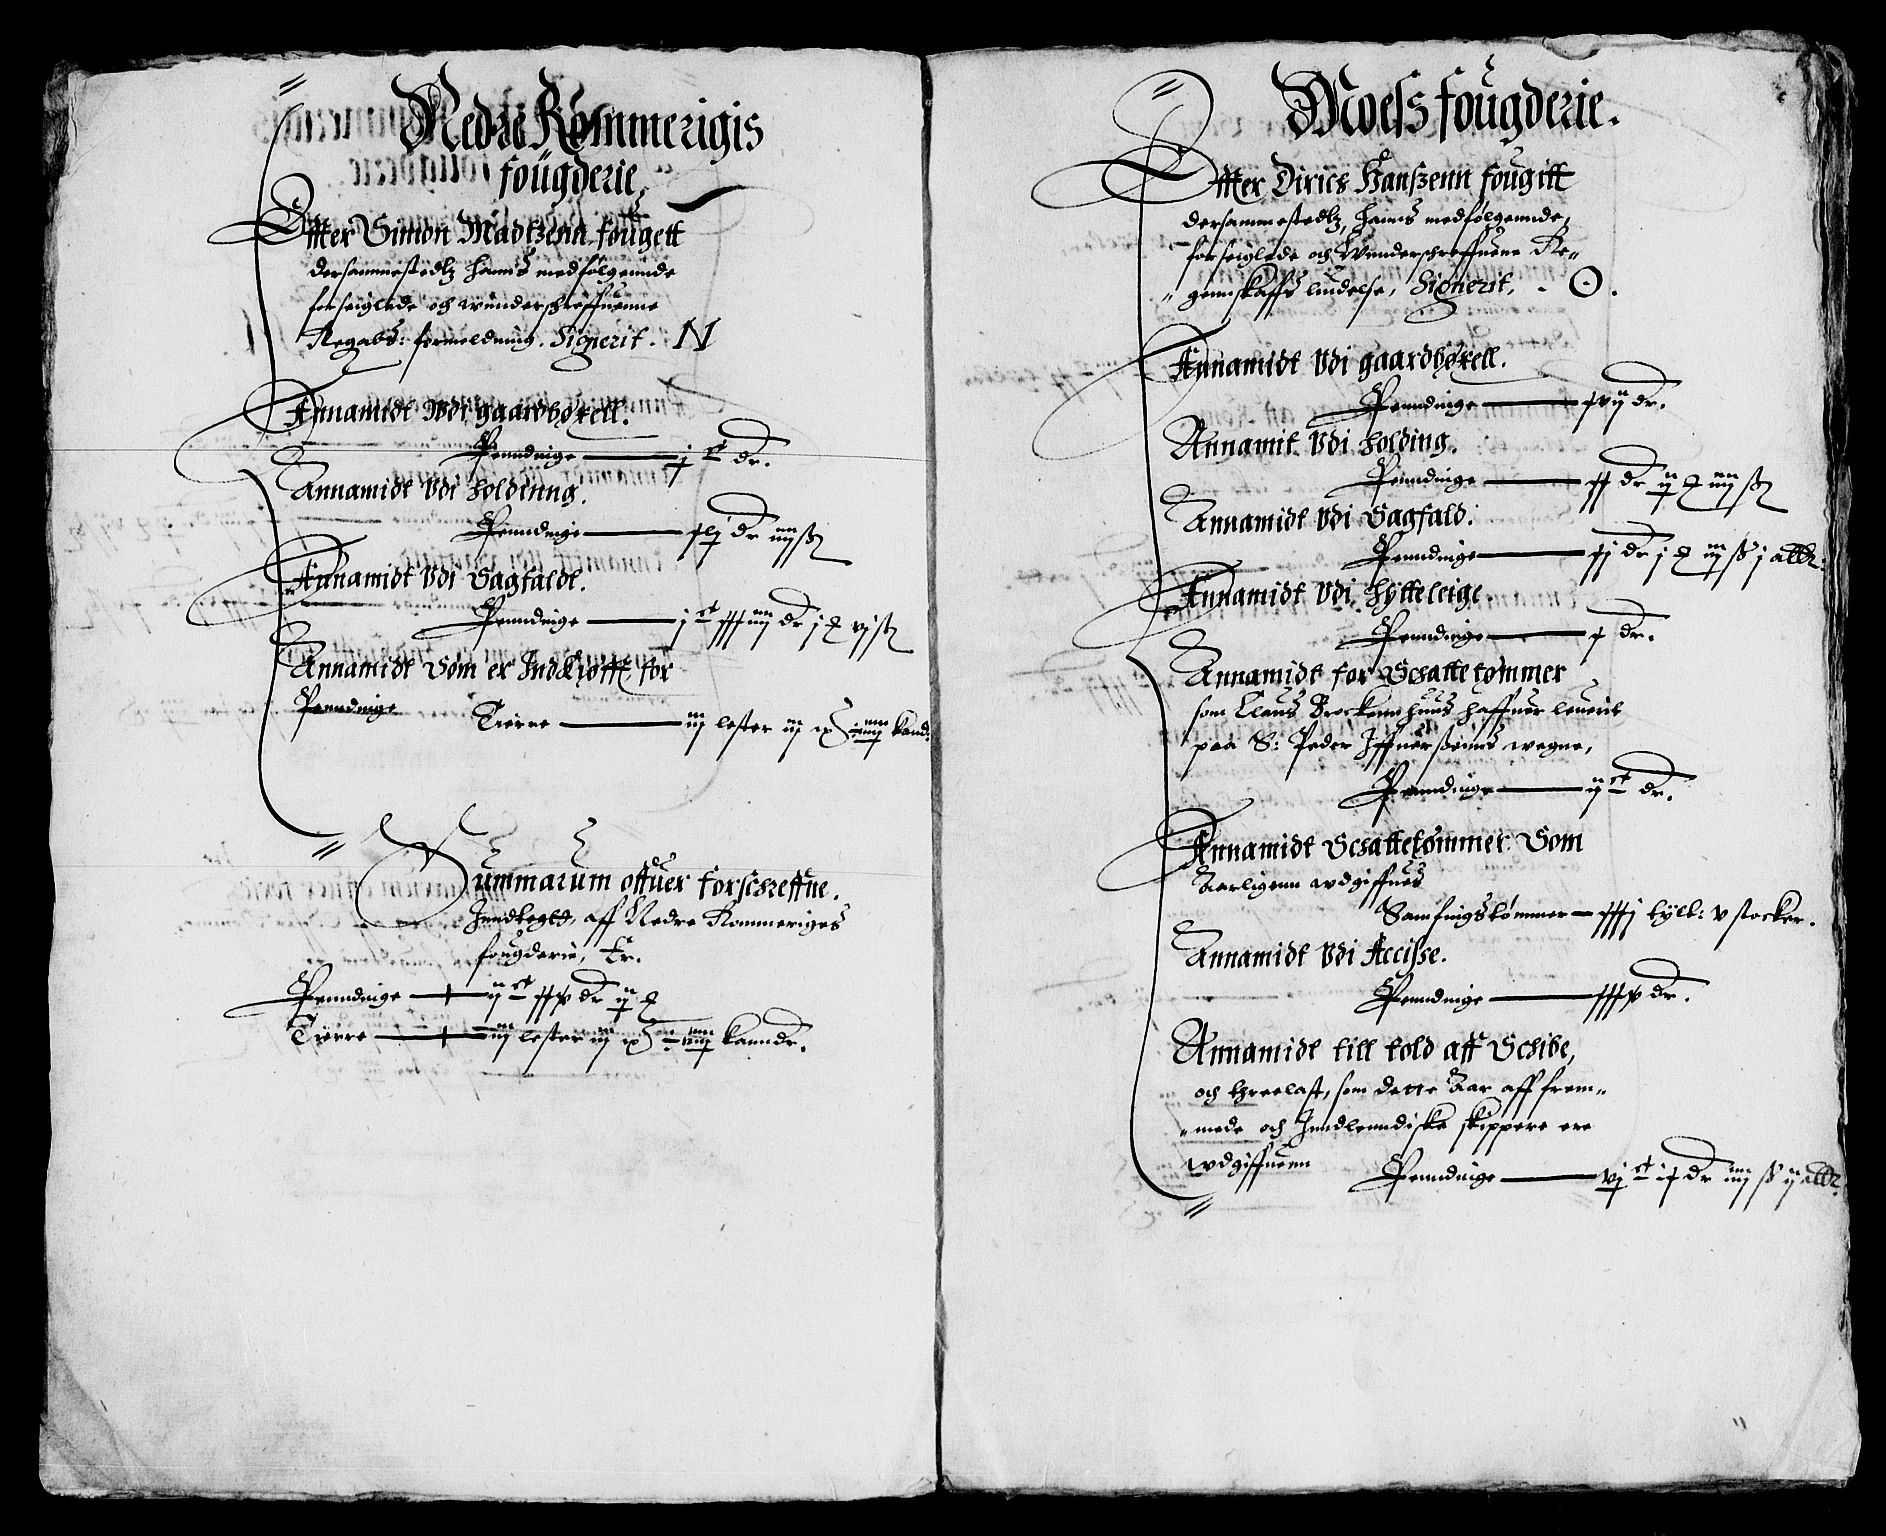 Nedre Rommerigis
fougderie,
Effter Simon Madtzenn fougett
dersammestedtz hanns medfølgennde
forseiglede och wunderschreffuenne
Regnbs: formeldning. Signerit. N
Annamidt Vdi gaardbøxell.
Penndinge — j ct dr.
Annamidt Vdi holdinng.
Penndinge — dr iiij ß
Annamidt Vdi Sagfaldt.
Penndinge — j ct dr j vj ß
Annamidt Som er Indkiøfft for
Penndinge
Tierre — iij lester iij kand.
Summarum offuer forschreffne.
Inndtegtt, aff Nedre Rommeriges
fougderie, Er.
Penndinge — ij ct dr ij
Tierre — iij lester iij kanndr.
Moess fougderie.
Effter Dirics Hanssenn fougitt
dersammestedtz, hanns medfølgennde,
forseiglede och Wunderschreffuene Re„
„ gennskaffs liudelse, Signerit, . O.
Annamidt Vdi gaardbøxell.
Penndinge — xvij dr.
Annamit Vdi holding.
Penndinge — xx dr ij iiij ß
Annamidt Vdi Sagfald.
Penndinge — xj dr j iij ß j alb:
Annamidt Vdi Hytteleige.
Penndinge — x dr.
Annamidt for Schattetømmer
som Claus Brockennhuus haffuer leuerit
paa S: Peder Iffuerßenns wegne,
Penndinge — ij ct dr.
Annamidt Schattetømmer Som
Aarligenn wdgiffues
Samfingstømmer — xxxj tylt: v stocker.
Annamidt Vdi Accisse.
Penndinge — dr.
Annamidt till told aff Schibe,
och threelast, som dette Aar aff frem„
„mede och Inndlenndiske skippere ere
wdgiffuenn Penndinge — vj ct dr iiij ß ij alb.